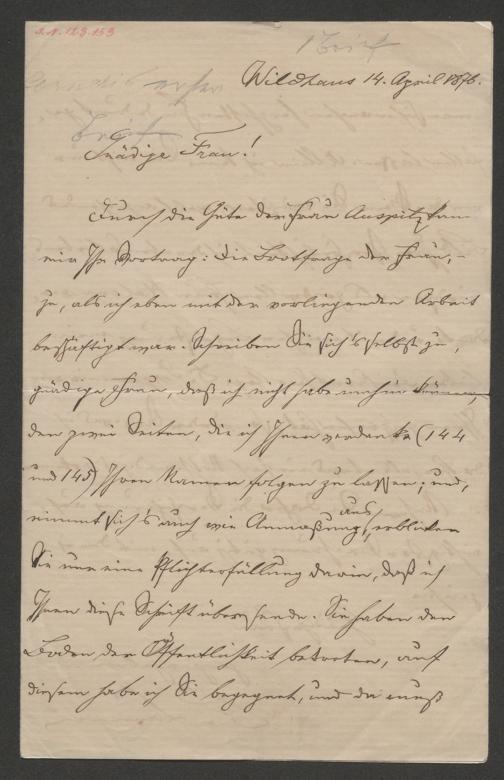 I.N. 123.153
1 Brief
Wildhaus 14. April 1876.
Gnädige Frau!
Durch die Güte der Frau Auspitz kam
mir Ihr Vortrag: Die Brotfrage der Frau, –
zu, als ich eben mit der vorliegenden Arbeit
beschäftigt war. Schreiben Sie sich's selbst zu,
gnädige Frau, daß ich nicht habe umhin können,
den zwei Seiten, die ich Ihnen verdanke (144
und 145) Ihren Namen folgen zu lassen; und,
nimmt sich's auch wie Anmaßung aus, erblicken
Sie nur eine Pflichterfüllung darin, daß ich
Ihnen diese Schrift übersende. Sie haben den
Boden der Öffentlichkeit betreten, auf
diesem habe ich Sie begegnet, und da muß